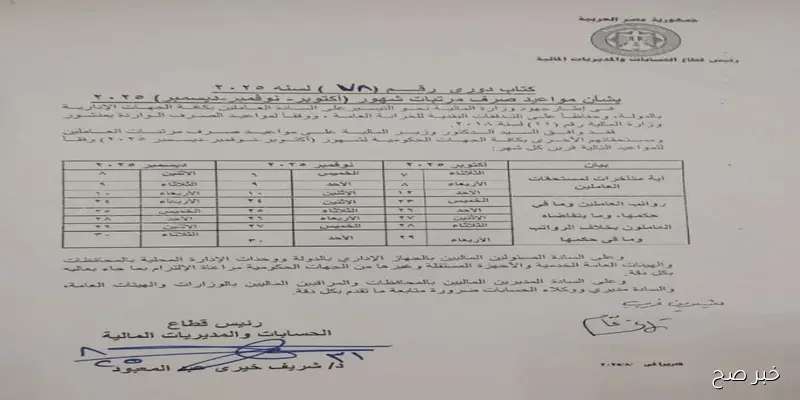 جمهورية مصر العربية
رئيس قطاع الحسابات والمديريات المالية
كتاب دورى رقم (٧٨) لسنه ٢٠٢٥
بشان مواعيد صرف مرتبات شهور (أكتوبر- نوفمبر-ديسمبر) ٢٠٢٥
في إطار جهود وزارة المالية نحو التيسير على السادة العاملين بكافة الجهات الإدارية
بالدولة، وحفاظاً على التدفقات النقدية للخزانة العامة، ووفقاً لمواعيد الصرف الواردة بمنشور
وزارة المالية رقم (١١) لسنة ٢٠١٨.
فقد وافق السيد الدكتور وزير المالية على مواعيد صرف مرتبات العاملين
ومستحقاتهم الأخرى بكافة الجهات الحكومية لشهور (أكتوبر نوفمبر ديسمبر ٢٠٢٥) وفقاً
للمواعيد التالية قرين كل شهر:
بيان أكتوبر ٢٠٢٥ نوفمبر ٢٠٢٥ ديسمبر ٢٠٢٥
أية متأخرات لمستحقات العاملين
الثلاثاء ٧ الخميس ٦ الاثنين ٨
الأربعاء ٨ الأحد ٩ الثلاثاء ٩
الأحد ١٢ الاثنين ١٠ الأربعاء ١٠
رواتب العاملين وما في حكمها، وما يتقاضاه العاملون بخلاف الرواتب وما في حكمها
الخميس ٢٣ الاثنين ٢٤ الأربعاء ٢٤
الأحد ٢٦ الثلاثاء ٢٥ الخميس ٢٥
الاثنين ٢٧ الأربعاء ٢٦ الأحد ٢٨
الثلاثاء ٢٨ الخميس ٢٧ الاثنين ٢٩
الأربعاء ٢٩ الأحد ٣٠ الثلاثاء ٣٠
وعلى السادة المسئولين الماليين بالجهاز الإداري بالدولة ووحدات الإدارة المحلية بالمحافظات
والهيئات العامة الخدمية والأجهزة المستقلة وغيرها من الجهات الحكومية مراعاة الإلتزام بما جاء بعاليه
بكل دقة.
وعلى السادة المديرين الماليين بالمحافظات والمراقبين الماليين بالوزارات والهيئات العامة،
والسادة مديري ووكلاء الحسابات ضرورة متابعة ما تقدم بكل دقة.
رئيس قطاع
الحسابات والمديريات المالية
٣١ ٨ ٢٥
د/ شريف خيرى عبد المعبود
خبر صح